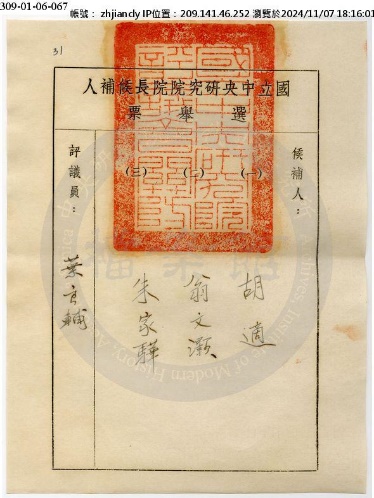 309-01-06-067
帳號： zhjiandy IP位置：209.141.46.252 瀏覽於2024/11/07 18:16:01
31
人補候長院院究研央中立國
票舉選
候補人：
(一)
胡適
(二)
翁文灝
(三)
朱家驊
評議員：